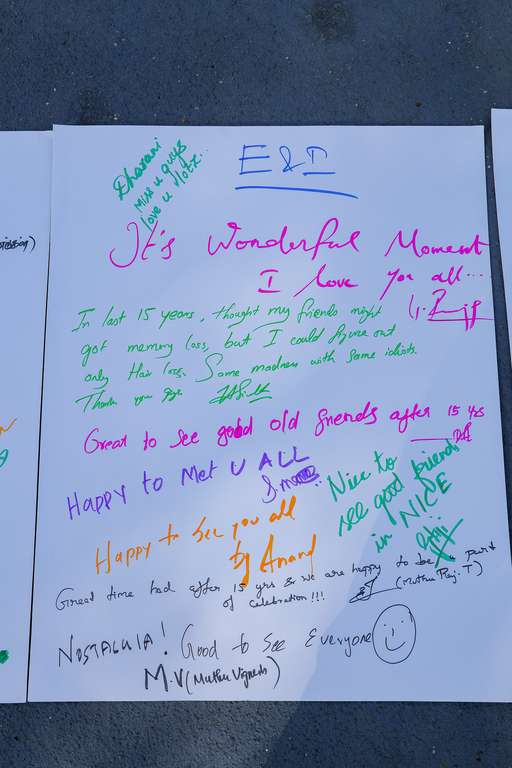 E & I
Dharani
miss u guys
love u lotz...
It's Wonderful Moment
I love you all...
In last 15 years, thought my friends might
got memory loss, but I could figure out
only Hair loss. Same madness with same idiots.
Thank you guys
Great to see good old friends after 15 yrs
Happy to Met U ALL
Nice to
see good friends
in NICE
Happy to See you all
by Anand
Great time had after 15 yrs & we are happy to be a part
of celebration!!!
(Muthu Raj. T)
NOSTALGIA! Good to See Everyone
M.V (Muthu Vignesh)